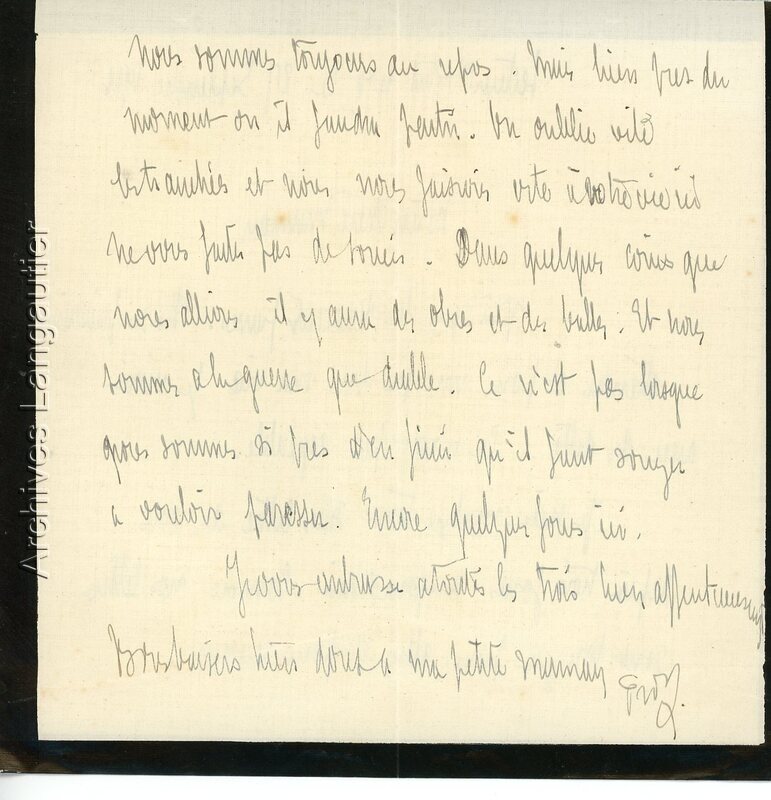 nous sommes toujours au repos. Mais bien pres du
moment ou il faudra partir. On oublie vite
les tranchées et nous nous faisons vite à votre vie ici
ne vous faites pas de soucis. Dans quelques coins que
nous allions il y aura des obus et des balles. Et nous
sommes a la guerre que diable. Ce n'est pas lorsque
nous sommes si pres d'en finir qu'il faut songer
a vouloir paresser. Encore quelques jours ici.
Je vous embrasse a toutes les trois bien affectueusement
Bons baisers bien doux a ma petite maman
Archives Langautier